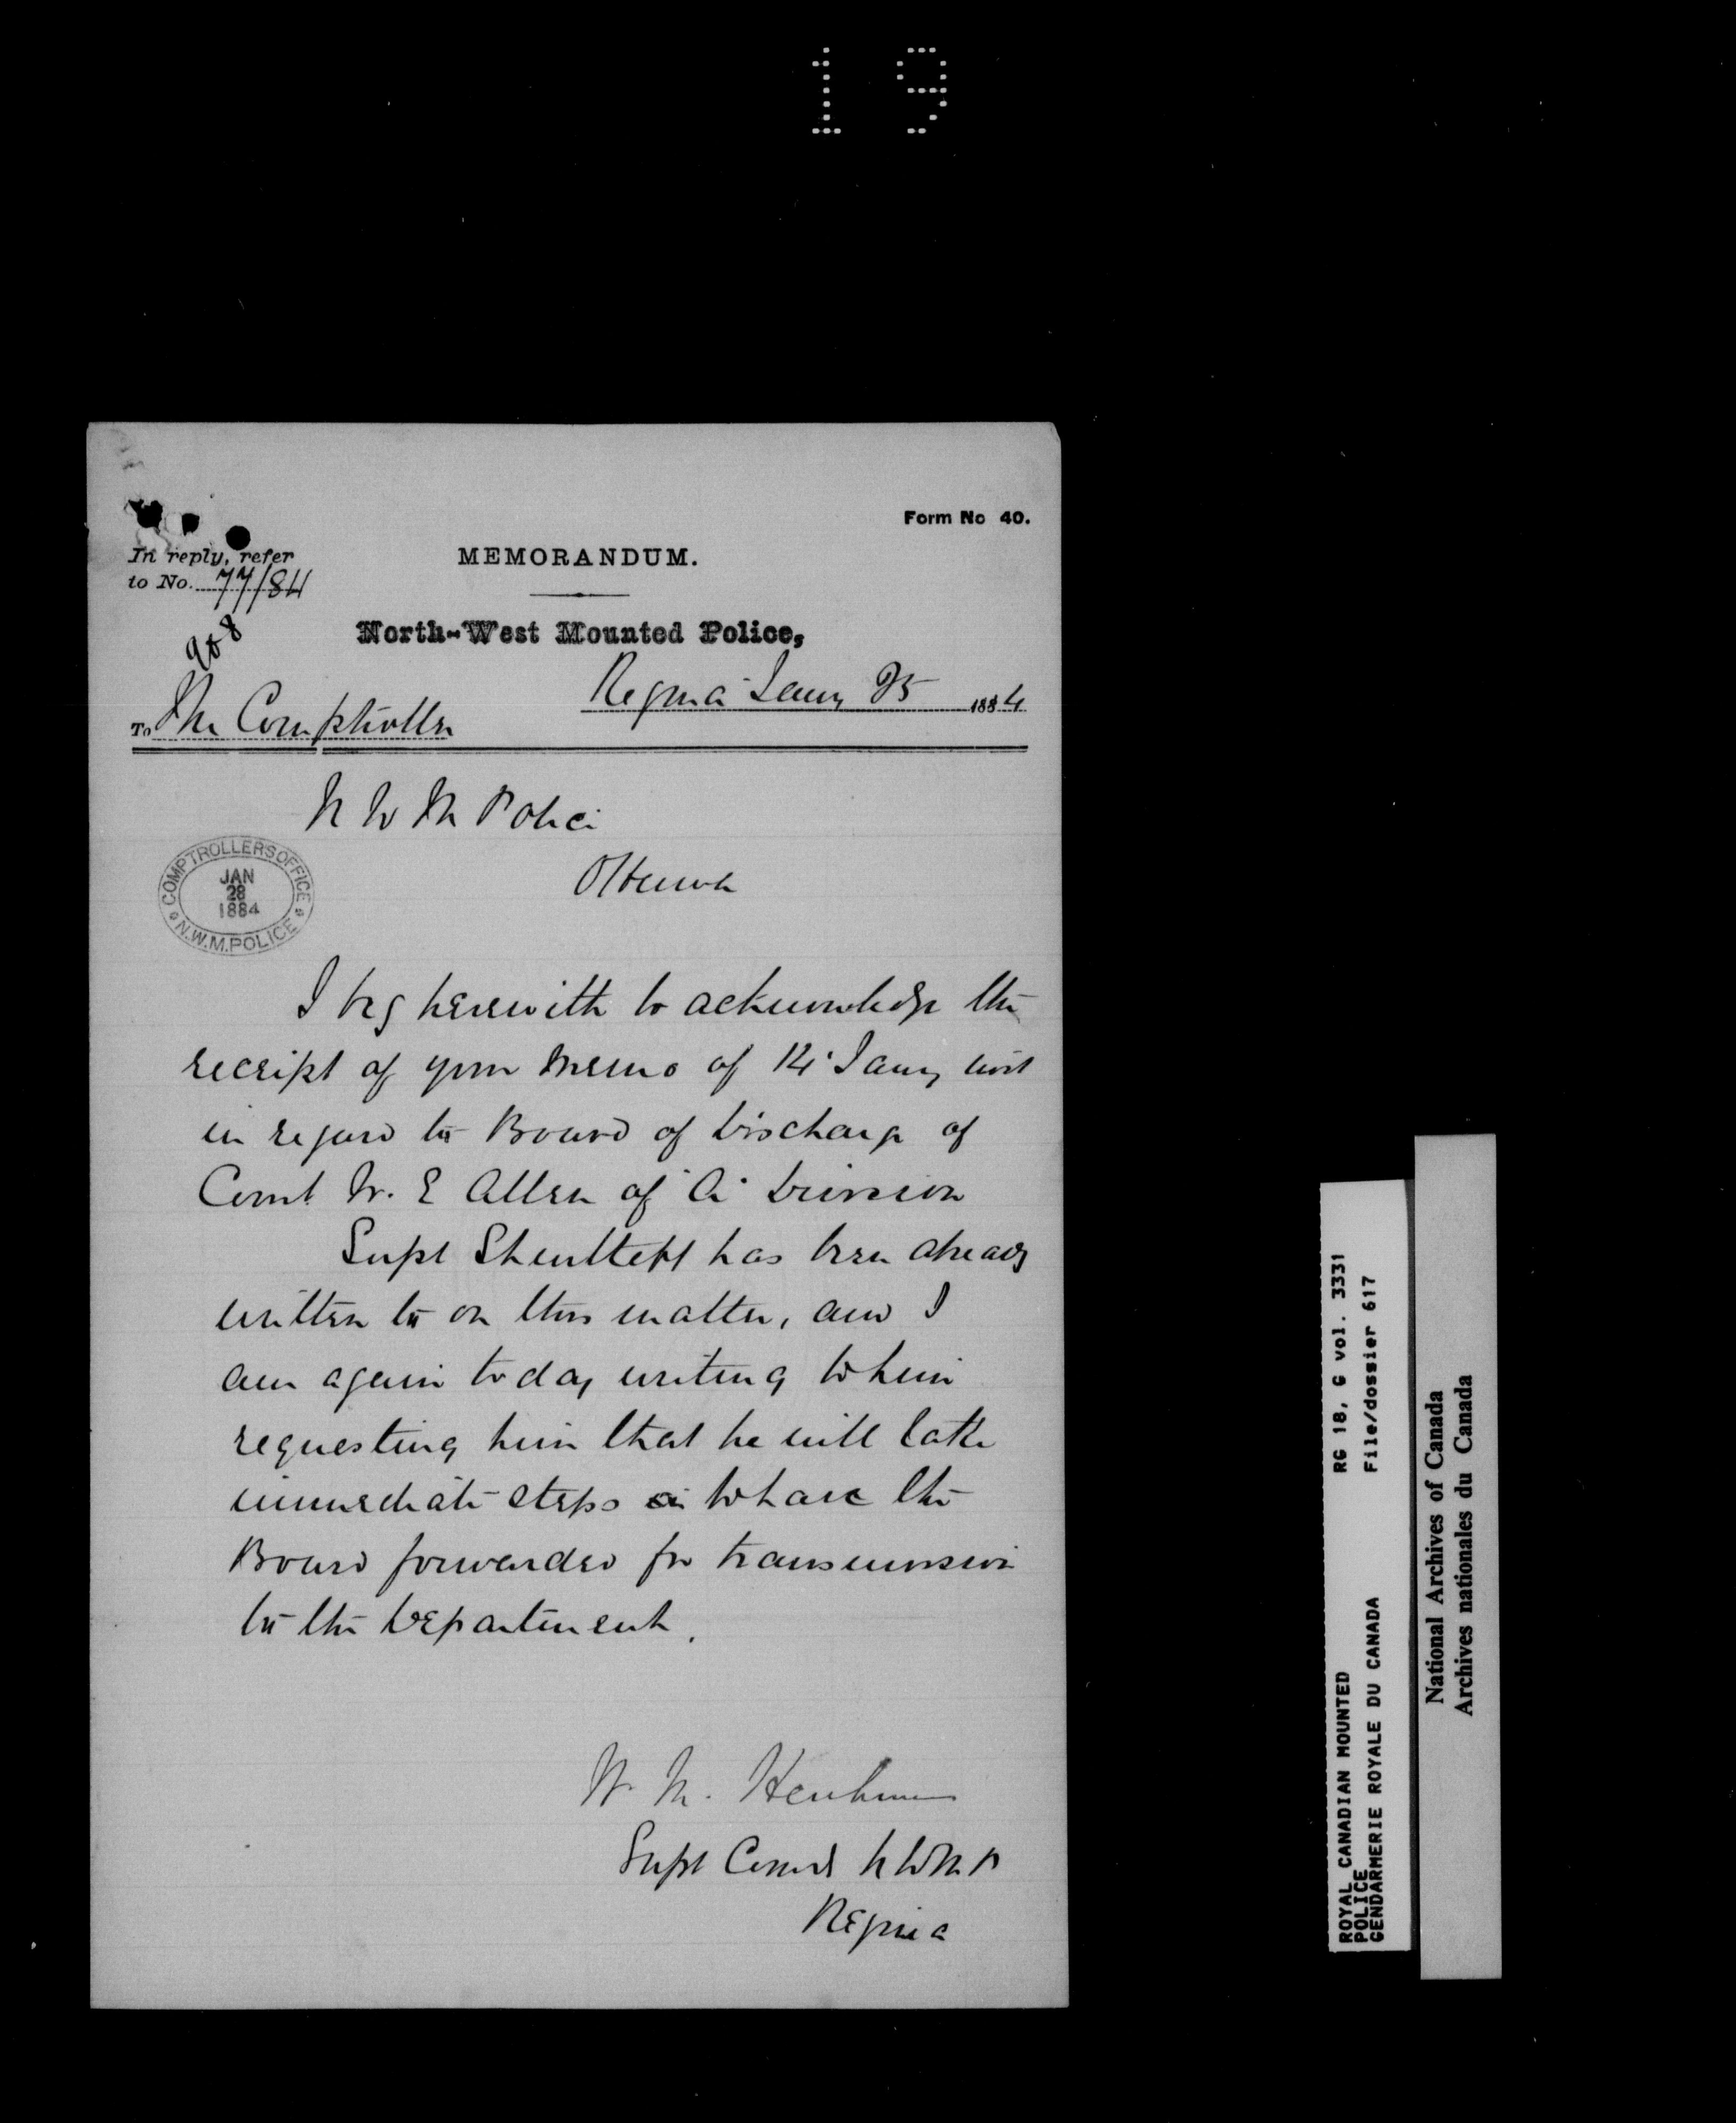 19
Form No 40.
In reply, refer
to No. 77/84
MEMORANDUM.
North-West Mounted Police,
908
Regina Jany 25 1884
To The Comptroller
N W M Police
Ottawa
COMPTROLLERS OFFICE
JAN
28
1884
N.W.M. POLICE
I beg herewith to acknowledge the
receipt of your Memo of 14 Jany inst
in regard to Board of Discharge of
Const W. E Allen of "A" Division
Supt Shurtleff has been already
written to on this matter, and I
am again today writing to him
requesting him that he will take
immediate steps to have the
Board forwarded for transmission
to the Department.
W. M. Herchmer
Supt Comd N W M P
Regina
ROYAL CANADIAN MOUNTED
POLICE
GENDARMERIE ROYALE DU CANADA
RG 18, G vol. 3331
File/dossier 617
National Archives of Canada
Archives nationales du Canada